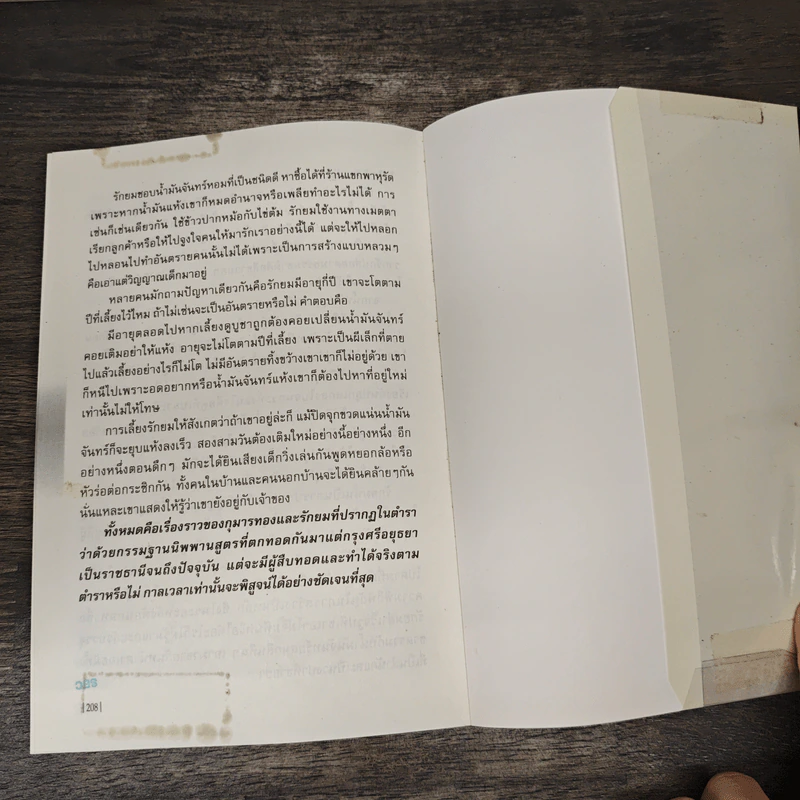 รักยมชอบน้ำมันจันทร์หอมที่เป็นชนิดดี หาซื้อได้ที่ร้านแขกพาหุรัด
เพราะหากน้ำมันแห้งเขาก็หมดอำนาจหรือเพลียทำอะไรไม่ได้ การ
เซ่นก็เช่นเดียวกัน ใช้ข้าวปากหม้อกับไข่ต้ม รักยมใช้งานทางเมตตา
เรียกลูกค้าหรือให้ไปจูงใจคนให้มารักเราอย่างนี้ได้ แต่จะให้ไปหลอก
ไปหลอนไปทำอันตรายคนนั้นไม่ได้เพราะเป็นการสร้างแบบหลวมๆ
คือเอาแต่วิญญาณเด็กมาอยู่
หลายคนมักถามปัญหาเดียวกันคือรักยมมีอายุกี่ปี เขาจะโตตาม
ปีที่เลี้ยงไว้ไหม ถ้าไม่เซ่นจะเป็นอันตรายหรือไม่ คำตอบคือ
มีอายุตลอดไปหากเลี้ยงดูบูชาถูกต้องคอยเปลี่ยนน้ำมันจันทร์
คอยเติมอย่าให้แห้ง อายุจะไม่โตตามปีที่เลี้ยง เพราะเป็นผีเล็กที่ตาย
ไปแล้วเลี้ยงอย่างไรก็ไม่โต ไม่มีอันตรายทิ้งขว้างเขาเขาก็ไม่อยู่ด้วย เขา
ก็หนีไปเพราะอดอยากหรือน้ำมันจันทร์แห้งเขาก็ต้องไปหาที่อยู่ใหม่
เท่านั้นไม่ให้โทษ
การเลี้ยงรักยมให้สังเกตว่าถ้าเขาอยู่ล่ะก็ แม้ปิดจุกขวดแน่นน้ำมัน
จันทร์ก็จะยุบแห้งลงเร็ว สองสามวันต้องเติมใหม่อย่างนี้อย่างหนึ่ง อีก
อย่างหนึ่งตอนดึกๆ มักจะได้ยินเสียงเด็กวิ่งเล่นกันพูดหยอกล้อหรือ
หัวร่อต่อกระซิกกัน ทั้งคนในบ้านและคนนอกบ้านจะได้ยินคล้ายๆกัน
นั่นแหละเขาแสดงให้รู้ว่าเขายังอยู่กับเจ้าของ
ทั้งหมดคือเรื่องราวของกุมารทองและรักยมที่ปรากฏในตำรา
ว่าด้วยกรรมฐานนิพพานสูตรที่ตกทอดกันมาแต่กรุงศรีอยุธยา
เป็นราชธานีจนถึงปัจจุบัน แต่จะมีผู้สืบทอดและทำได้จริงตาม
ตำราหรือไม่ กาลเวลาเท่านั้นจะพิสูจน์ได้อย่างชัดเจนที่สุด
| 208 |